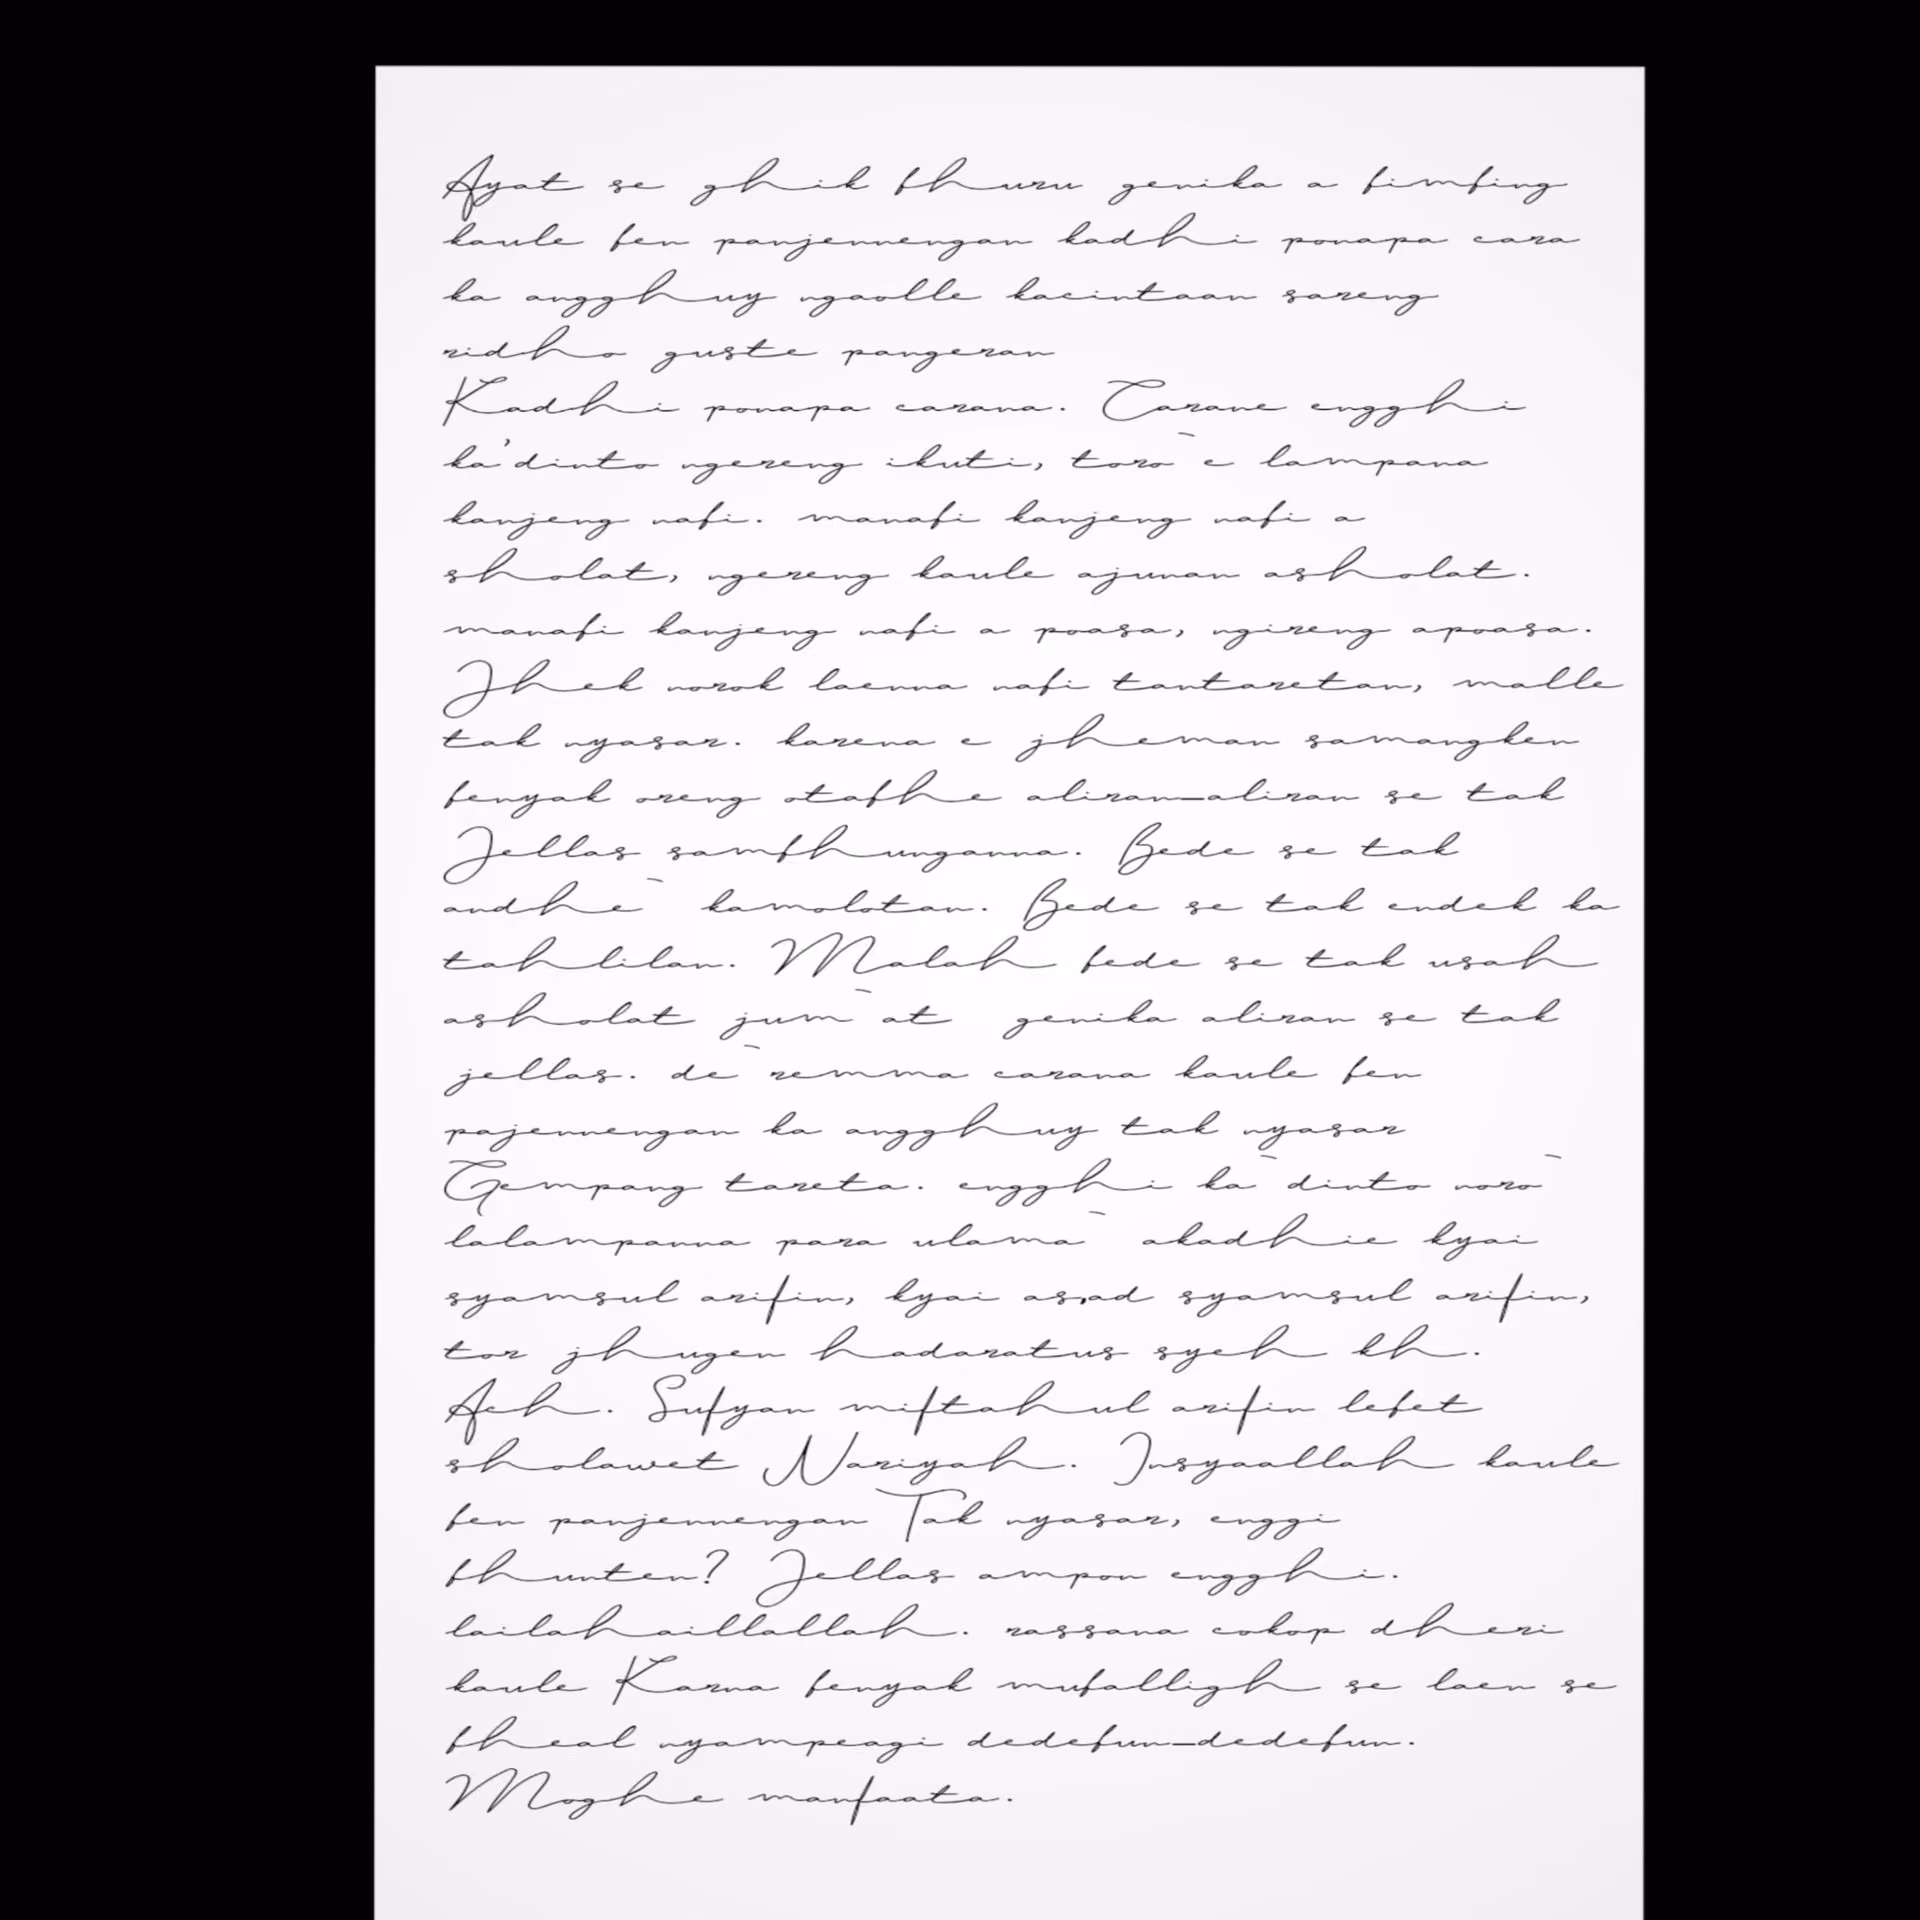 Ayat se ghik bhuru genika a bimbing
kaule ben panjennengan kadhi ponapa cara
ka anggghuy ngaolle kacintaan sareng
ridho guste pangeran
Kadhi ponapa carana. Carane enggghi
ka'dinto ngereng ikuti, toro¯ e lampana
kanjeng nabi. manabi kanjeng nabi a
sholat, ngereng kaule ajunan asholat.
manabi kanjeng nabi a poasa, ngireng apoasa.
Jhek norok laenna nabi tantaretan, malle
tak nyasar. karena e jheman samangken
benyak oreng otabhe aliran-aliran se tak
Jellas sambhunganna. Bede se tak
andhe¯ kamolotan. Bede se tak endek ka
tahlilan. Malah bede se tak usah
asholat jum¯at genika aliran se tak
jellas. de¯remma carana kaule ben
pajennengan ka anggghuy tak nyasar
Gempang tareta. enggghi ka¯dinto noro¯
lalampanna para ulama¯ akadhie kyai
syamsul arifin, kyai as,ad syamsul arifin,
tor jhugen hadaratus syeh kh.
Ach. Sufyan miftahul arifin lebet
sholawet Nariyah. Insyaallah kaule
ben panjennengan Tak nyasar, enggi
bhunten? Jellas ampon enggghi.
lailahaillallah. rassana cokop dheri
kaule Karna benyak muballigh se laen se
bheal nyampeagi dedebun-dedebun.
Moghe manfaata.